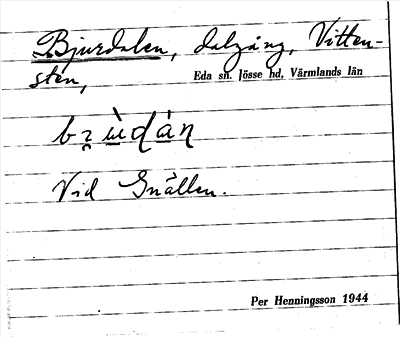 Bjurdalen, dalgång, Vitten-
sten, Eda sn. Jösse hd, Värmlands län
Vid Gnällen.
Per Henningsson 1944